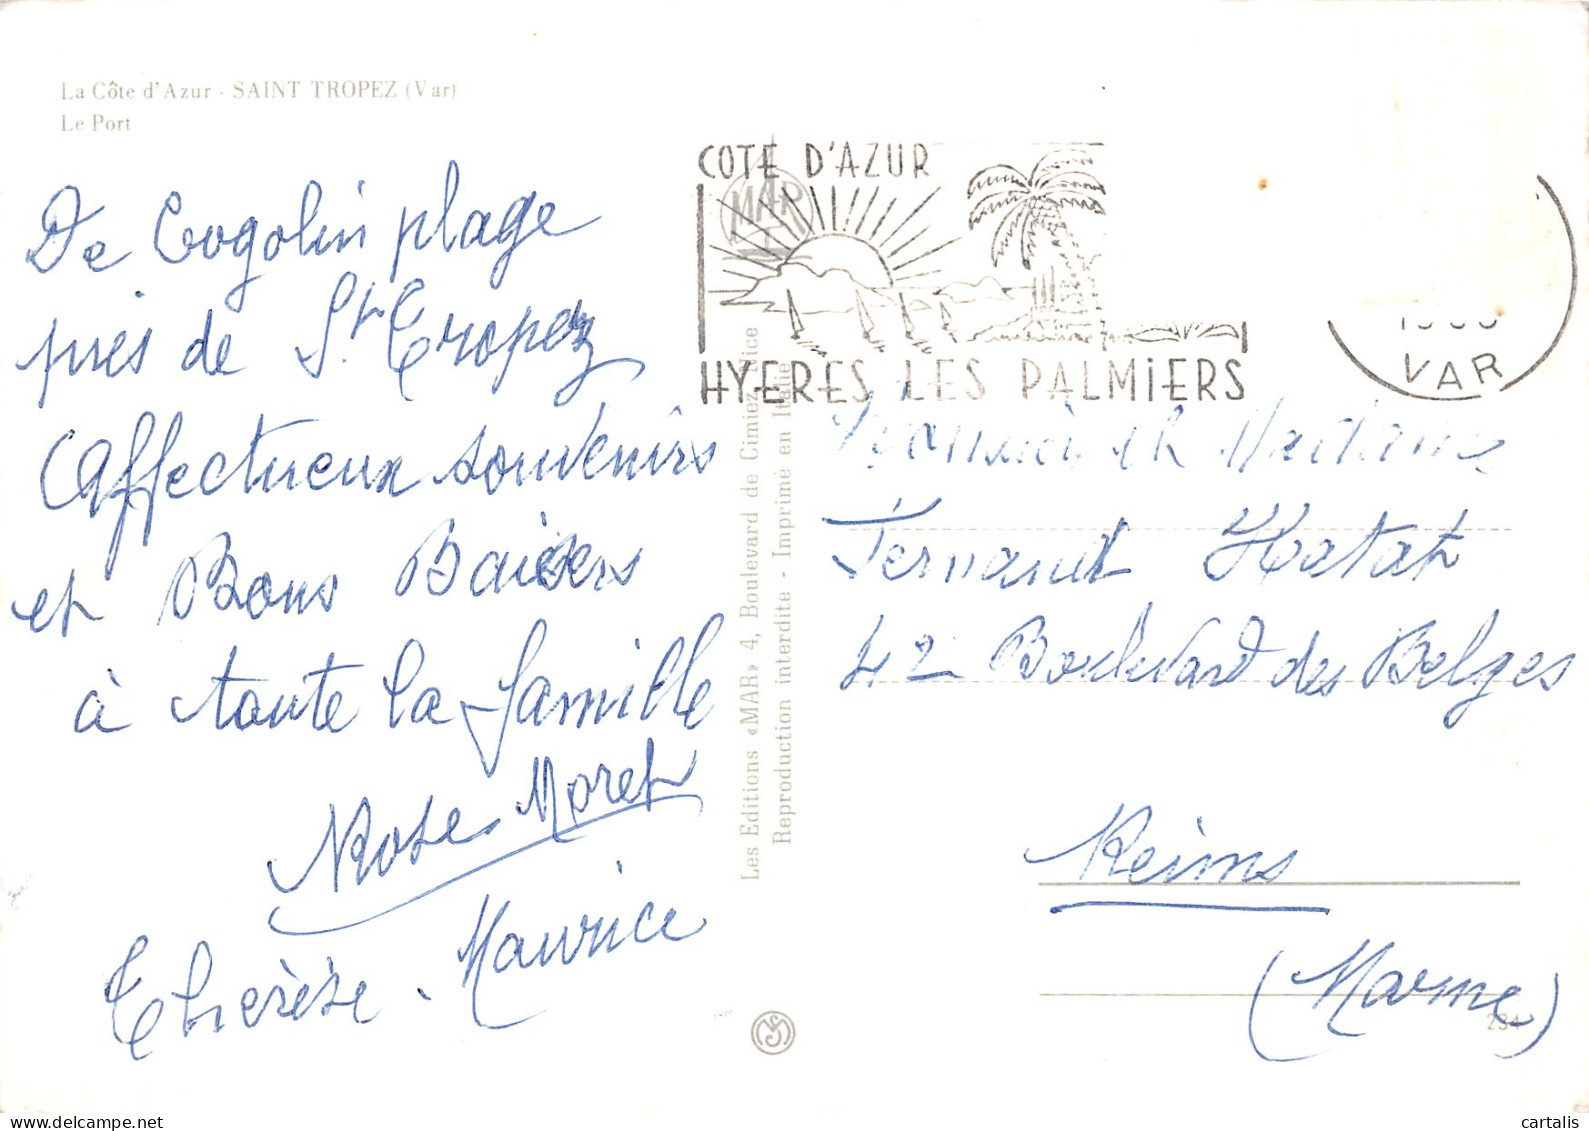 La Côte d'Azur - SAINT TROPEZ (Var)
Le Port
De Cogolin plage
près de St Tropez
Affectueux souvenirs
et Bons Baisers
à toute la famille
Rose Moret
Thérèse. Maurice
Les Editions «MAR» 4, Boulevard de Cimiez, Nice
Reproduction interdite - Imprimé en Italie
MAR
COTE D'AZUR
HYERES LES PALMIERS
VAR
Monsieur et Madame
Fernand Hatat
42 Boulevard des Belges
Reims
(Marne)
234
cartalis